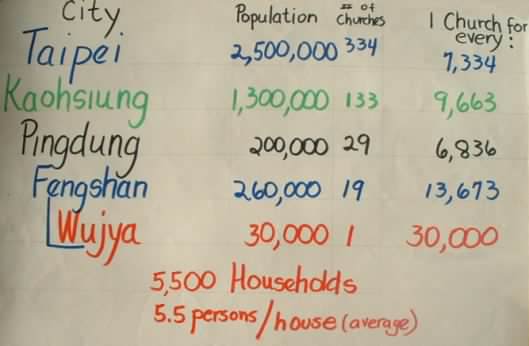 City Population # of Churches 1 Church for every:
Taipei 2,500,000 334 7,334
Kaohsiung 1,300,000 133 9,663
Pingdung 200,000 29 6,836
Fengshan 260,000 19 13,673
Wujya 30,000 1 30,000
5,500 Households
5.5 persons/house (average)